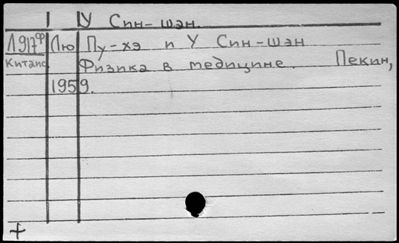 У Син-шэн.
1917ф Лю Пу-хэ и У Син-шэн
Китайс. Физика в медицине. Пекин,
1959.
+